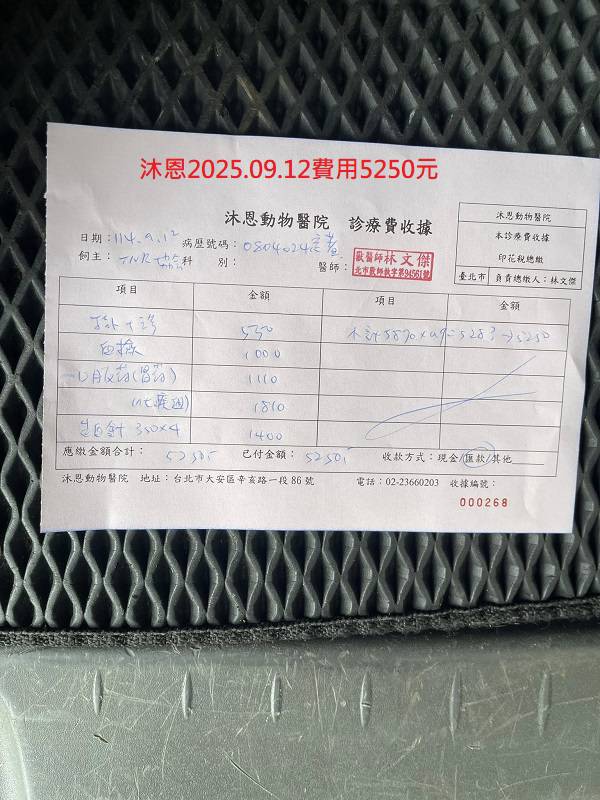 沐恩2025.09.12費用5250元
沐恩動物醫院 診療費收據
日期：114.9.12 病歷號碼：0804024
飼主：TNR協會 科別： 醫師：
獸醫師林文傑
北市獸醫師執字第
沐恩動物醫院
本診療費收據
印花稅總繳
臺北市 負責總繳人：林文傑
項目 金額 項目 金額
550 小計5870x0.9=5283→5250
血檢 1000
口服藥(胃藥) 1110
1810
造血針 350×4 1400
應繳金額合計：5250 已付金額：5250 收款方式：現金/匯款/其他
沐恩動物醫院 地址：台北市大安區辛亥路一段86號 電話：02-23660203 收據編號：
000268